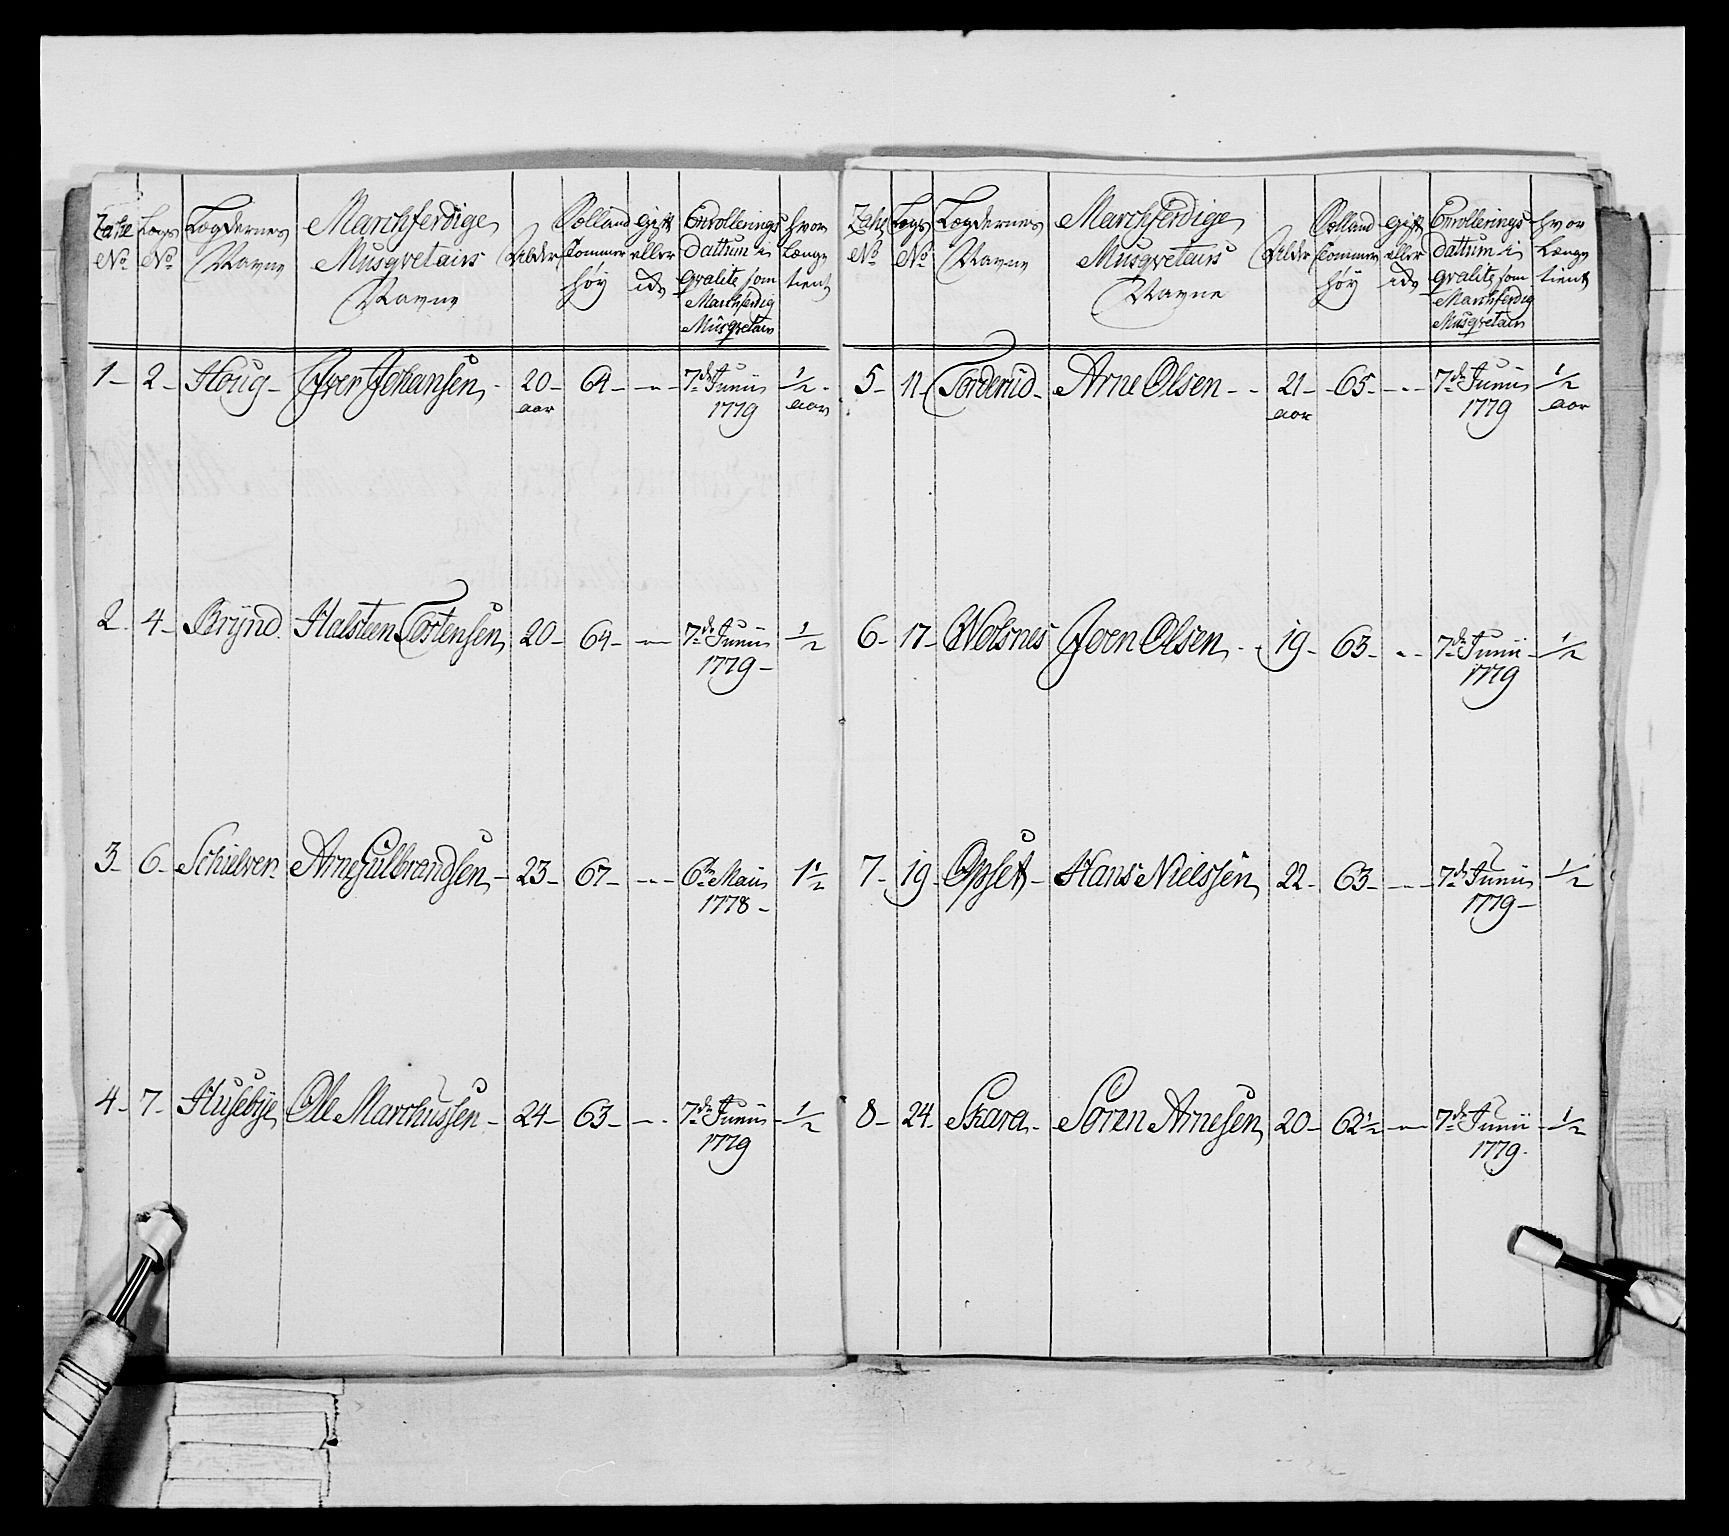 Tahl No Lægs No Lægdernes Navne Marchferdige Musqvetairs Navne Alder Sælland Tommer høy Gift eller Ide Enrollerings Dattum i qvalite som Marchferdig Musqvetair hvor Længe tient
1 - 2 - Houg - Iver Johansen - 20 - aar 64 - - 7de Junii 1779 1/2 aar
2. 4 - Brynd. Halsteen Tostensen 20 - 64 - - 7de Junii 1779 - 1/2
3 - 6 - Schielver. Arne Gulbrandsen - 23 - 67 - - 6te Maii 1778 - 1 1/2
4 - 7 - Husebye Ole Marchussen - 24 - 63 - - 7de Junii 1779 1/2
Tahl No Lægs No Lægdernes Navne Marchferdige Musqvetairs Navne Alder Sælland Tommer høy Gift eller Ide Enrollerings Dattum i qvalite som Marchferdig Musqvetair hvor Længe tient
5 - 11 - Torderud - Arne Olsen - - 21 - aar 65 - - 7de Junii 1779 1/2 aar
6 - 17 - Wolsnes Joen Olsen - 19 - 63 - - 7de Junii 1779 1/2
7 - 19 - Opset - Hans Nielssen 22 - 63 - - 7de Junii 1779 - 1/2
8 - 24 - Skara - Søren Arnesen 20 - 62 1/2 - 7de Junii 1779. 1/2